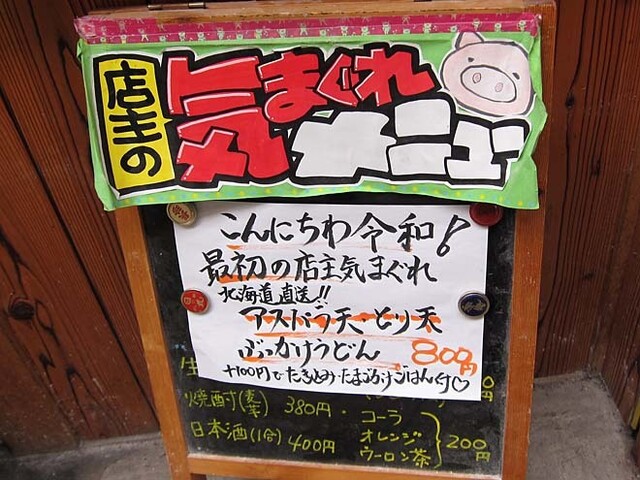 店主の
気まぐれ
メニュー
こんにちわ令和!
最初の店主気まぐれ
北海道直送!!
アスパラ天・とり天
ぶっかけうどん 800円
+100円でたきこみ・たまごかけごはん付♡
生
焼酎(麦芋) 380円・コーラ
日本酒(1合) 400円 オレンジ
ウーロン茶
200円